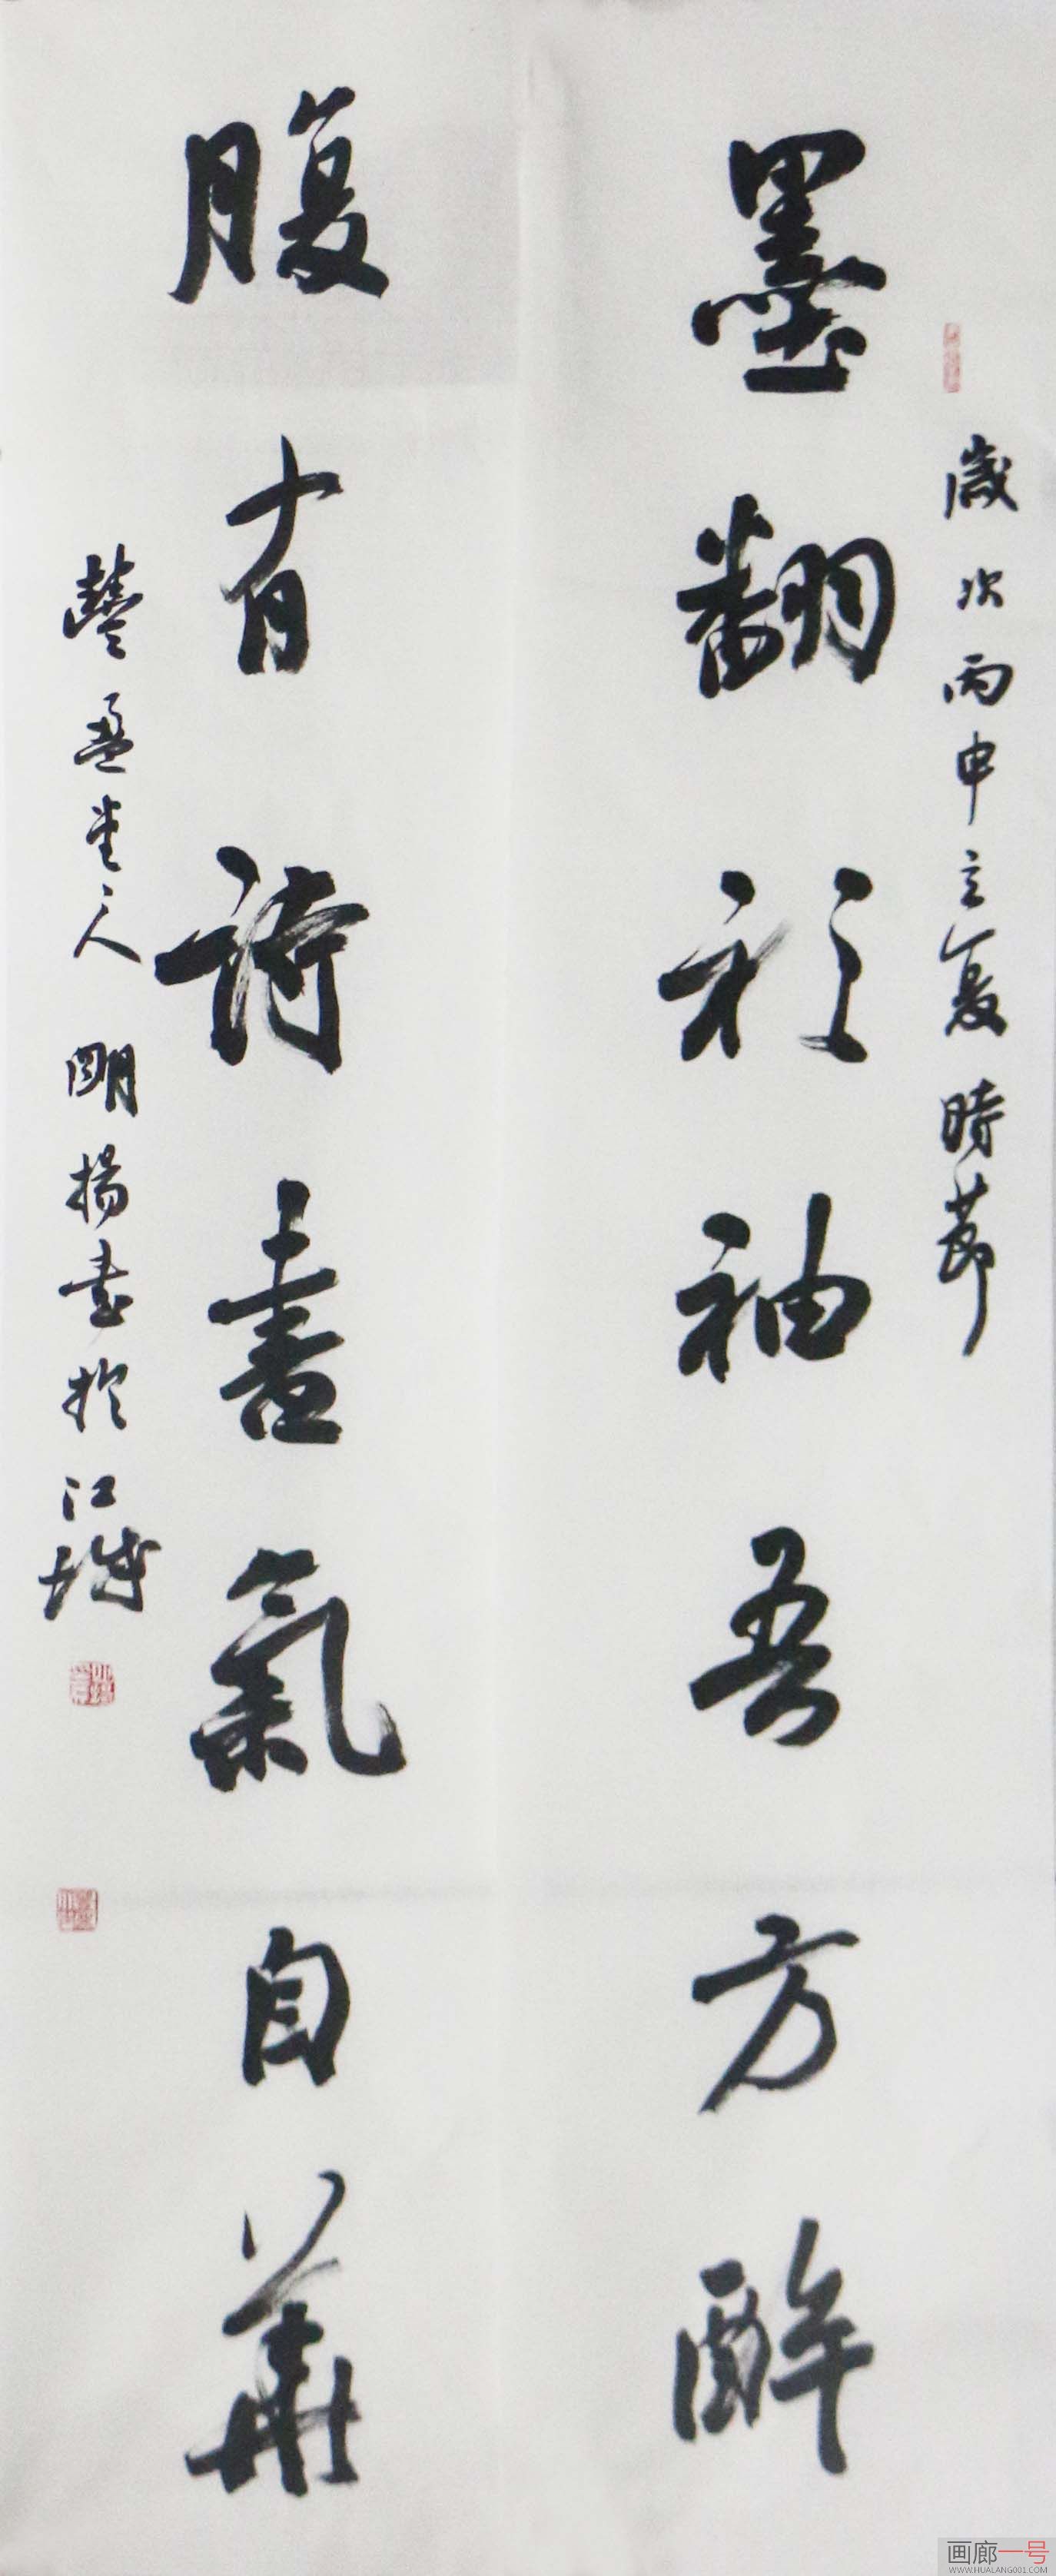 歲次丙申立夏時節
墨翻衫袖吾方醉
腹有詩書氣自華
盈堂主人 明揚書於江城
画廊一号
WWW.HUALANG001.COM